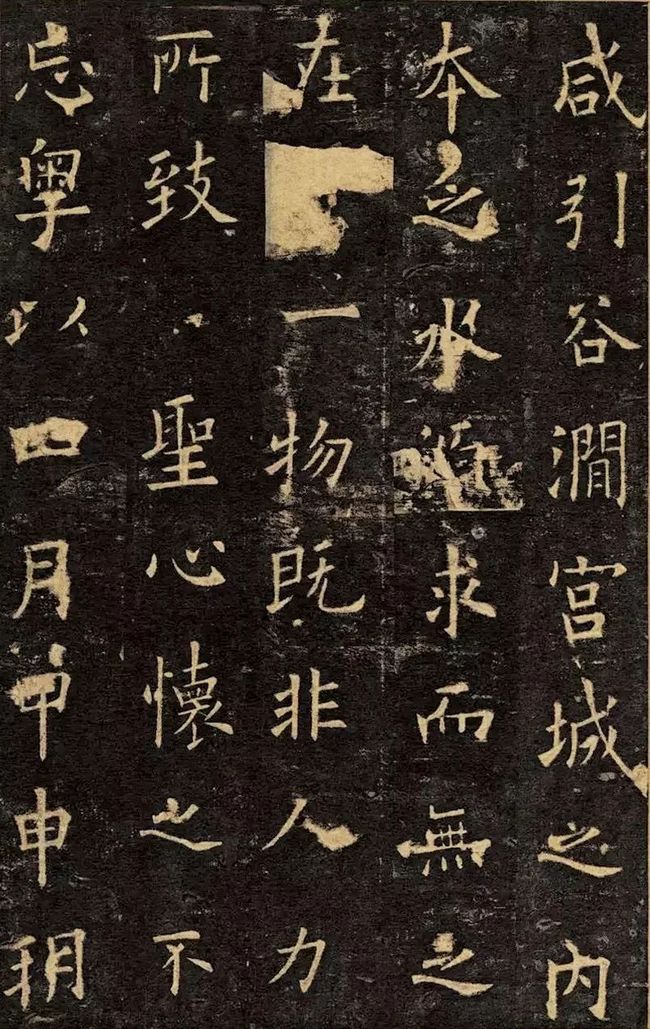 咸引谷澗宮城之内
本乏水源求而無之
在一物既非人力
所致聖心懷之不
忘粤以四月甲申朔